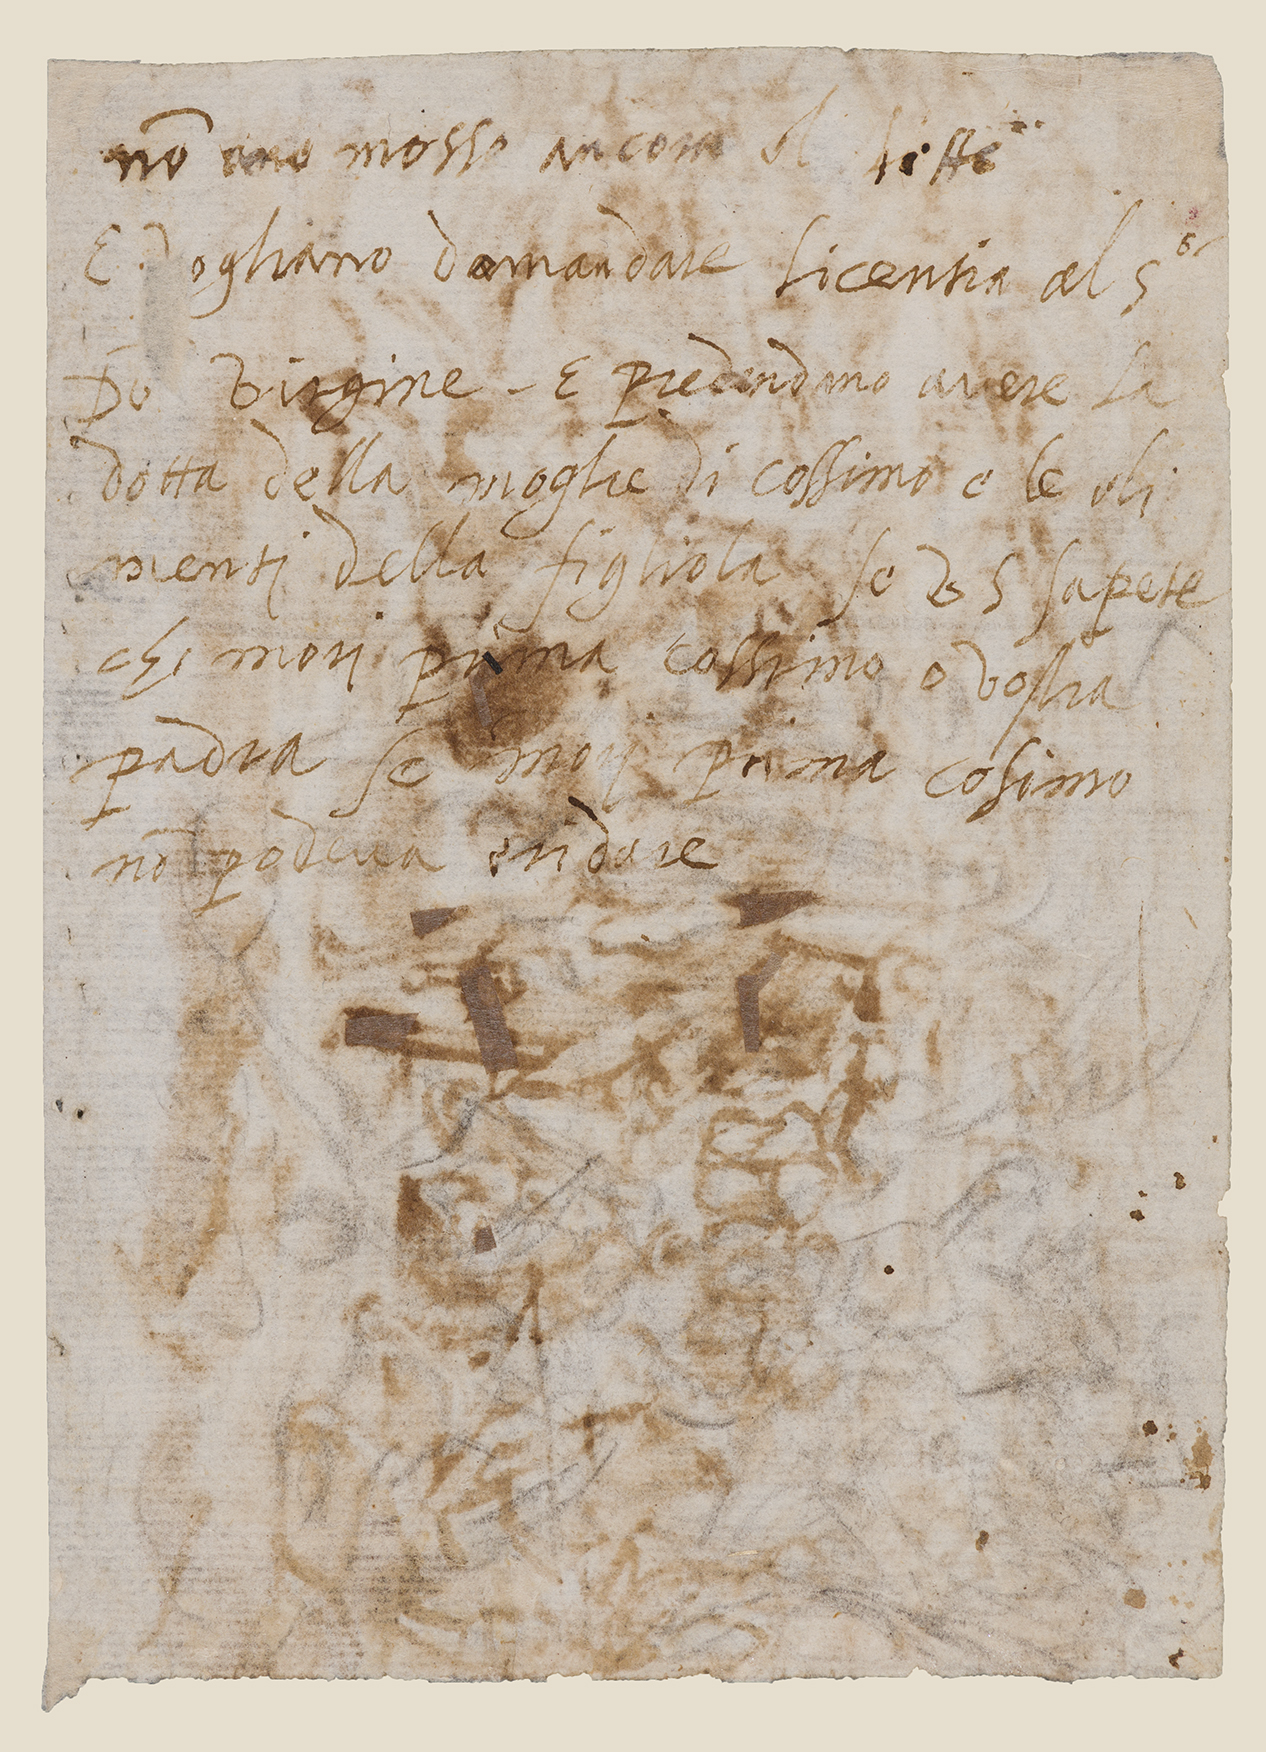 nō ano mosso ancora il
E vogliano domandare licentia al S.or
Do Virgine - E predendano avere la
dotta della moglie di cossimo e le ali
menti della figliola se V S sapete
chi mori prima cossimo o vostra
padra se mori prima cosimo
nō podeva eridare